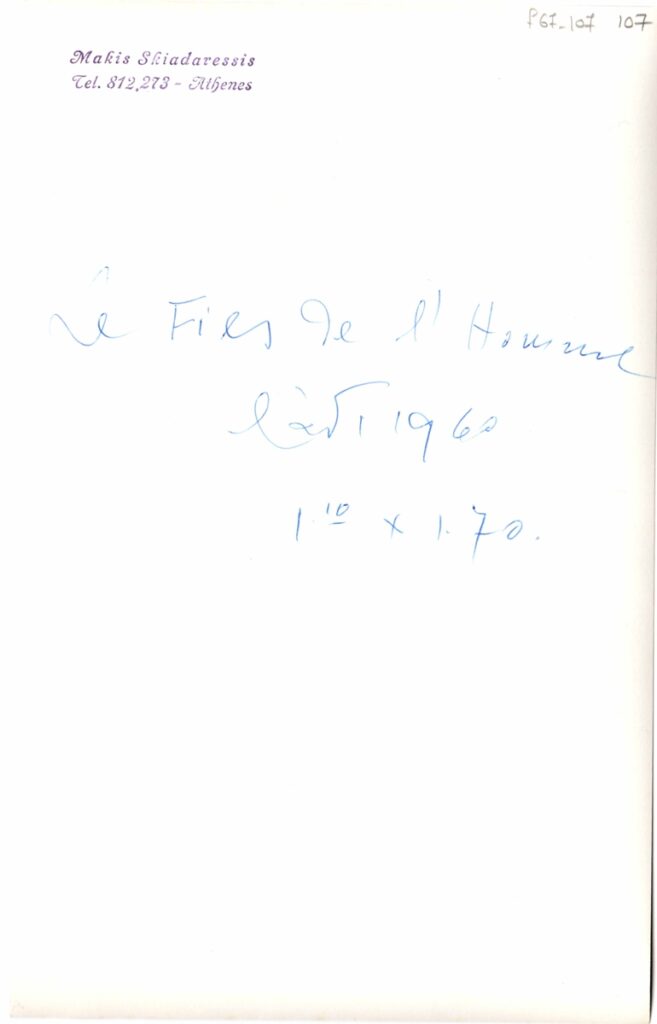 P67-107 107
Makis Skiadaressis
Tel. 812,273 - Athenes
Le Fils de l'Homme
1960
1.10 x 1.70.